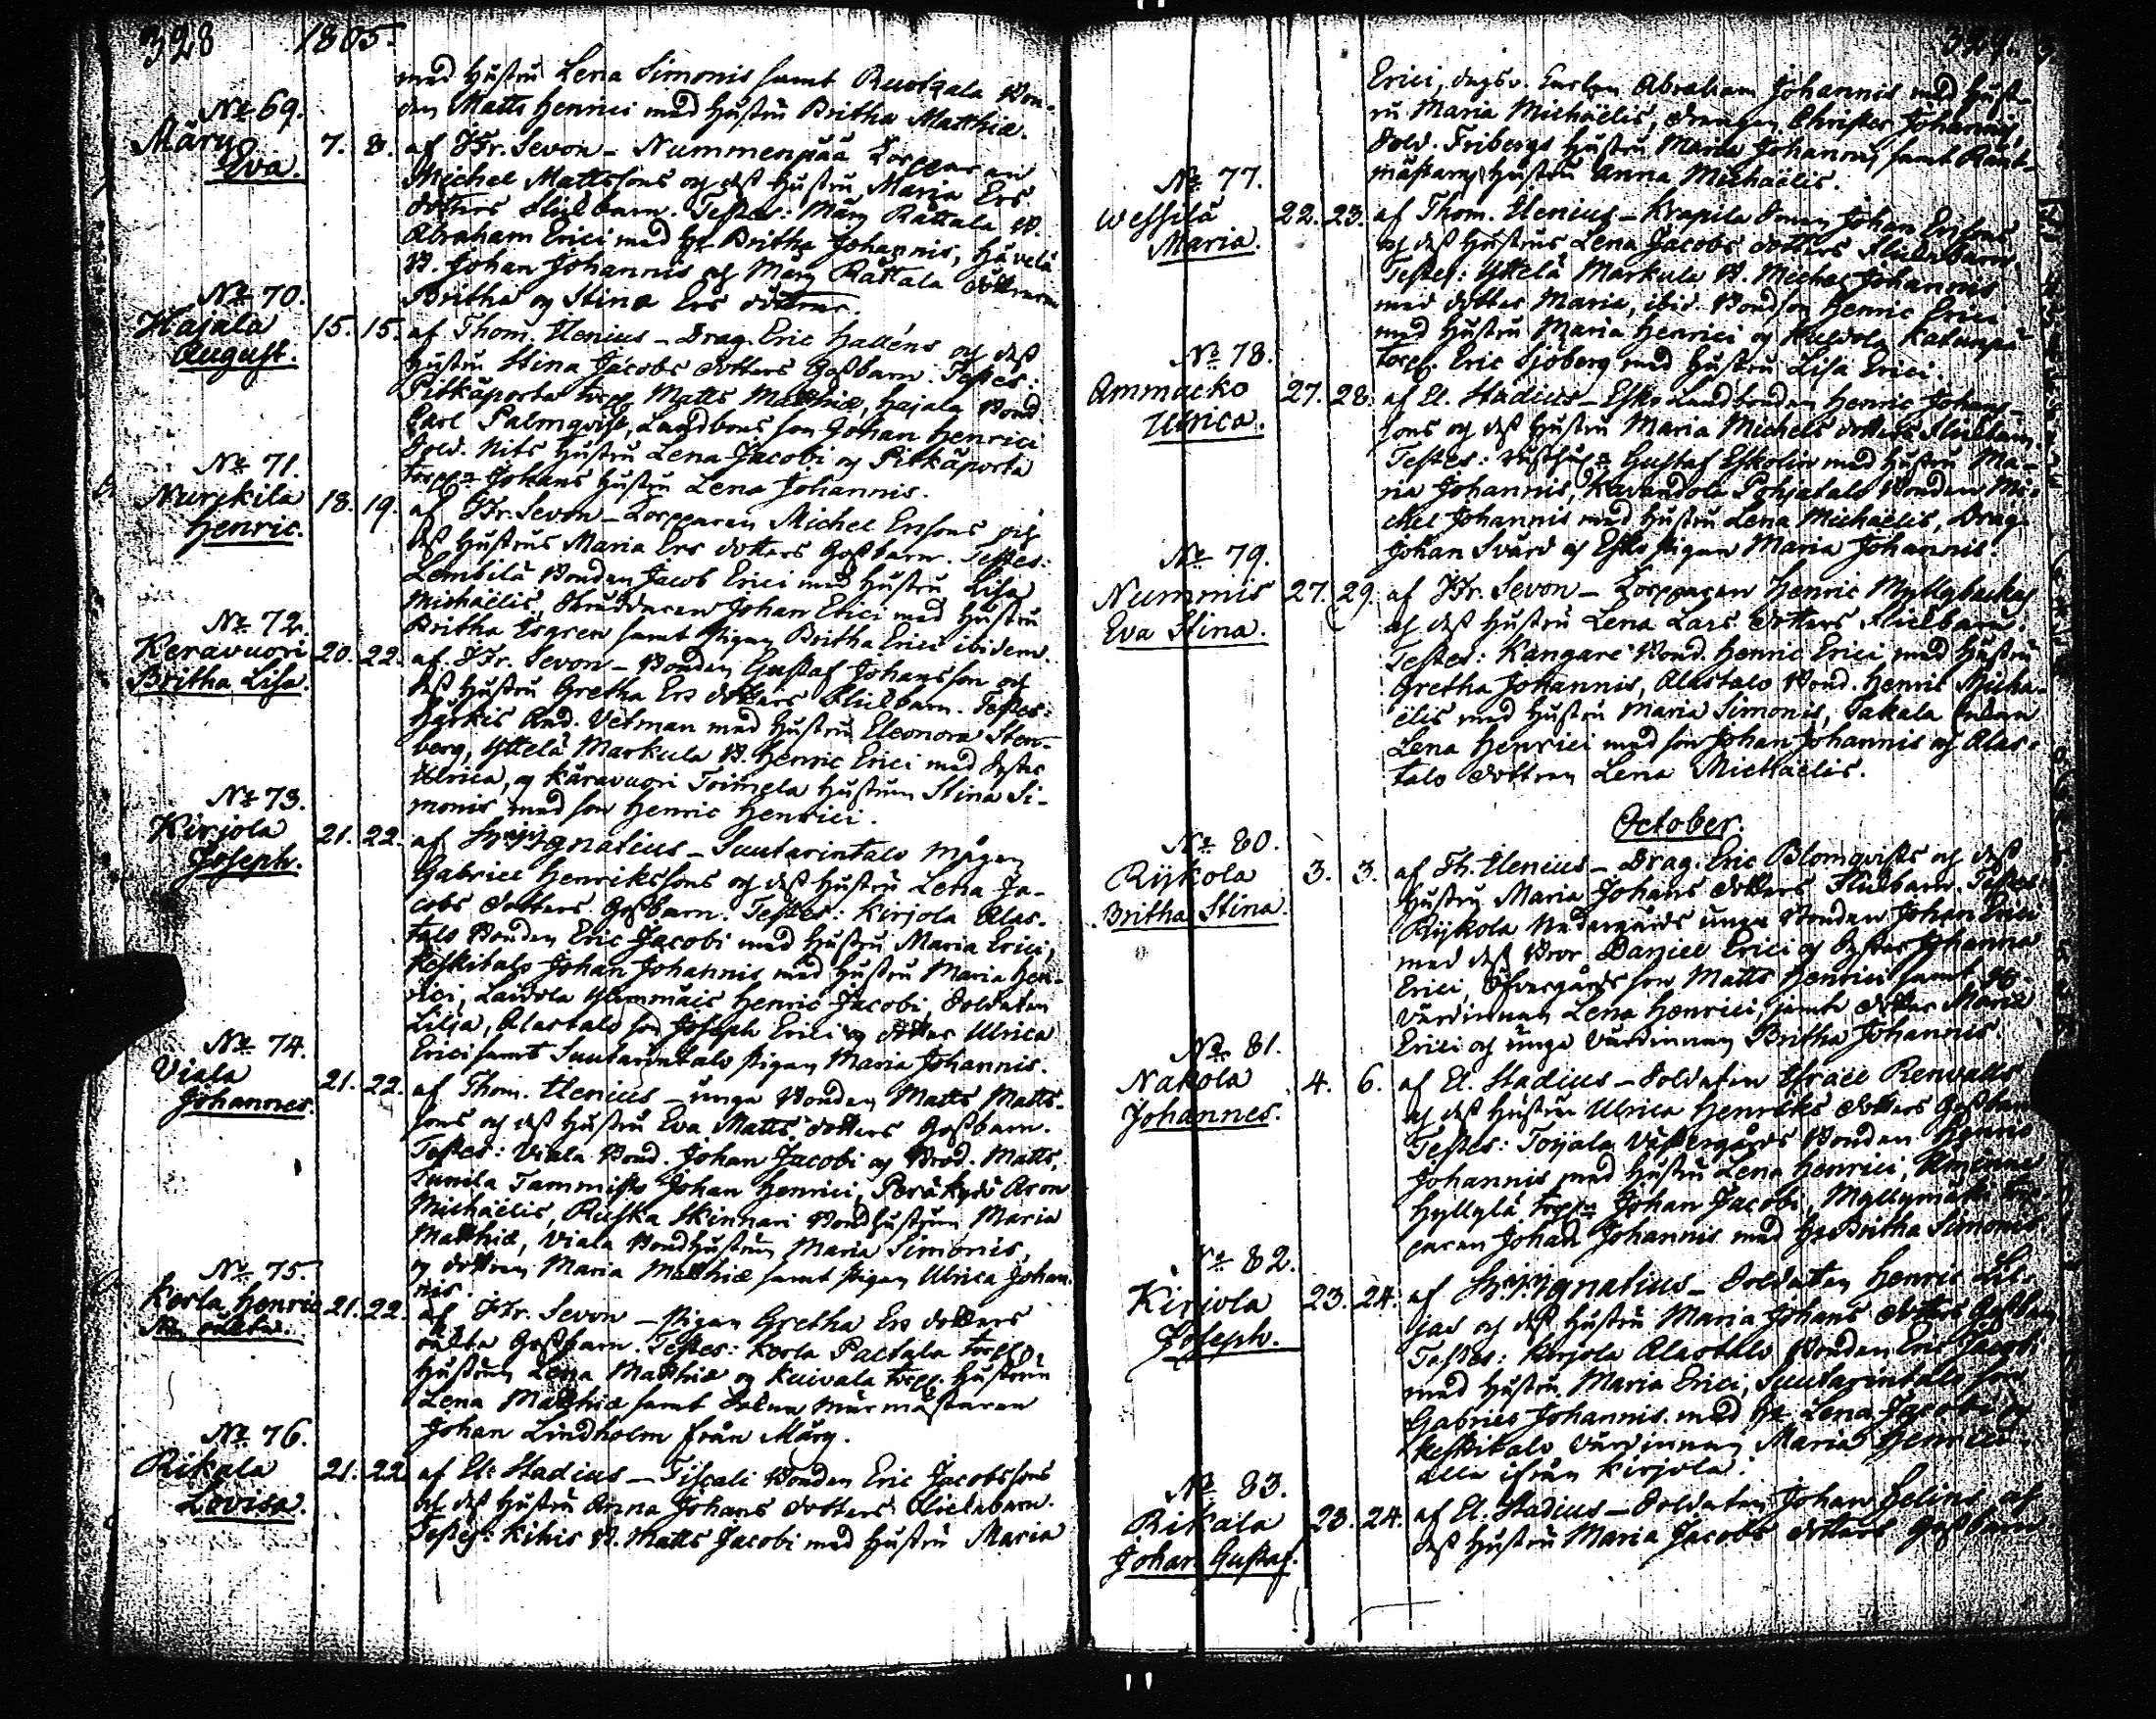 328 1805.
med Hustru Lena Simonis samt Bon-
den Matts Henrici med Hustru Britha Matthiæ.
No 69.
Märy 7. 8. af Fr. Sevon - Nummenpää Torparen
Eva.
Michel Mattssons og dess Hustru Maria Ers
dotters flickbarn. Testes: Märy Rättälä B.
Abraham Erici med H. Britha Johannis, Hävelä
B. Johan Johannis og Märy Rättala döttrarne
Britha og Stina Ers döttrar.
No 70.
Hajala 15. 15. af Thom. Elenius - Drag. Eric Halléns og dess
August.
Hustru Stina Jacobs dotters Gossbarn. Testes:
Pitkäporta torp. Matts Matthiæ, Hajala Bond.
Carl Palmqvist, Landbons son Johan Henrici
Sold. Nits Hustru Lena Jacobi og Pitkäporta
torp. Johans Hustru Lena Johannis.
No 71.
Nurkkila 18. 19. af Fr. Sevon - Torparen Michel Ersons og
Henric.
dess Hustrus Maria Ers dotters Gossbarn. Testes:
Lembilä Bonden Jacob Erici med Hustru Lisa
Michaëlis, Skräddaren Johan Erici med Hustru
Britha samt pigan Britha Erici ibidem.
No 72.
Keravuori 20. 22. af Fr. Sevon - Bonden Gustaf Johansson og
Britha Lisa.
dess Hustru Gretha Ers dotters flickbarn. Testes:
Härkis And. Vetman med Hustru Eleonora Sten-
berg, Yttelä Markula B. Henric Erici med syster
Ulrica, og Käravuori Toimela Hustrun Stina Si-
monis med son Henric Henrici.
No 73.
Kirjola 21. 22. af Ignatius - Suutarintalo Mågen
Joseph.
Gabriel Henrikssons og dess Hustru Lena Ja-
cobs dotters Gossbarn. Testes: Kirjola Alas-
talo Bonden Eric Jacobi med Hustru Maria Erici,
Keskitalo Johan Johannis med Hustru Maria Hen-
rici, Laidola Henric Jacobi, Soldaten
Lilja, Alastalo son Joseph Erici og dotter Ulrica
Erici samt Suutarintalo pigan Maria Johannis.
No 74.
Viala 21. 22. af Thom. Elenius - unga Bonden Matts Matts-
Johannes.
sons og dess Hustru Eva Matts dotters Gossbarn.
Testes: Viala Bond. Johan Jacobi og Brod. Matts,
Tunila Tammisto Johan Henrici, Peräkylä Aron
Michaëlis, Ruska Skinnari Bondhustrun Maria
Matthiæ, Viala Bondhustrun Maria Simonis,
og dottren Maria Matthiæ samt pigan Ulrica Johan-
nis.
No 75.
Korla, Henric 21. 22. af Fr. Sevon - pigan Gretha Ers dotters
oäkta.
oäkta Gossbarn. Testes: Korla Paltala torp.
Hustrun Lena Matthiæ og Kuivala torp. Hustrun
Lena Matthiæ samt murmästaren
Johan Lindholm från Märy.
No 76.
Rikala 21. 22. af El. Stadius - Tiskali Bonden Eric Jacobssons
Lovisa.
og dess Hustru Anna Johans dotters flickebarn.
Testes: Kikis B. Matts Jacobi med Hustru Maria
329.
Erici, Abraham Johannis med Hust-
ru Maria Michaëlis, drängen Christer Johannis,
Sold. Fribergs Hustru Maria Johannis, samt
mästarns Hustru Anna Michaëlis.
No 77.
Wessilä 22. 23. af Thom. Elenius - Krapila Johan Erssons
Maria.
og dess Hustrus Lena Jacobs dotters flickebarn.
Testes: Yttelä Markula B. Michel Johannis
med dotter Maria, ibid. Bondson Henric Erici
med Hustru Maria Henrici og Kuldola
torp. Eric Sjöberg med Hustru Lisa Erici.
No 78.
Ammacko 27. 28. af El. Stadius - Esko Landbonden Henric Johans-
Ulrica.
sons og dess Hustru Maria Michels dotters flickbarn.
Testes: Gustaf Eskolin med Hustru Ma-
ria Johannis, Kavandola Pohjatalo Bonden Mi-
chel Johannis med Hustru Lena Michaëlis, Drag.
Johan Svärd og Esko pigan Maria Johannis.
No 79.
Nummis 27. 29. af Fr. Sevon - Torparen Henric Myllybackas
Eva Stina.
og dess Hustru Lena Lars dotters flickbarn.
Testes: Kangare Bond. Henric Erici med Hustru
Gretha Johannis, Alastalo Bond. Henric Micha-
ëlis med Hustru Maria Simonis, Takala Enkan
Lena Henrici med son Johan Johannis og Alas-
talo dottren Lena Michaëlis.
October.
No 80.
Rijkola 3. 3. af Th. Elenius - Drag. Eric Blomqvists og dess
Britha Stina.
Hustru Maria Johans dotters flickbarn. Testes:
Rijkola Nedergårds unga Bonden Johan Erici
med dess Bror Daniel Erici og Syster Johanna
Erici, Öfvergårds son Matts Henrici samt
värdinnan Lena Henrici, jemte dotter Maria
Erici og unga värdinnan Britha Johannis.
No 81.
Nakola 4. 6. af El. Stadius - Soldaten Israel Renvalls
Johannes.
og dess Hustru Ulrica Henriks dotters Gossbarn
Testes: Toijala Västergårds Bonden Henric
Johannis med Hustru Lena Henrici,
Hyllylä torp. Johan Jacobi, Myllymäki tor-
paren Johan Johannis med H. Britha Simonis
No 82.
Kirjola 23. 24. af Ignatius - Soldaten Henric Lil-
Joseph.
jas og dess Hustru Maria Johans dotters Gossbarn.
Testes: Kirjola Alastalo Bonden Eric Jacobi
med Hustru Maria Erici, Suutarintalo son
Gabriel Johannis med H. Lena Jacobi og
Keskitalo värdinnan Maria Henrici
alla ifrån Kirjola.
No 83.
Rikala 23. 24. af El. Stadius - Soldaten Johan Felins og
Johan Gustaf.
dess Hustru Maria Jacobs dotters gossbarn